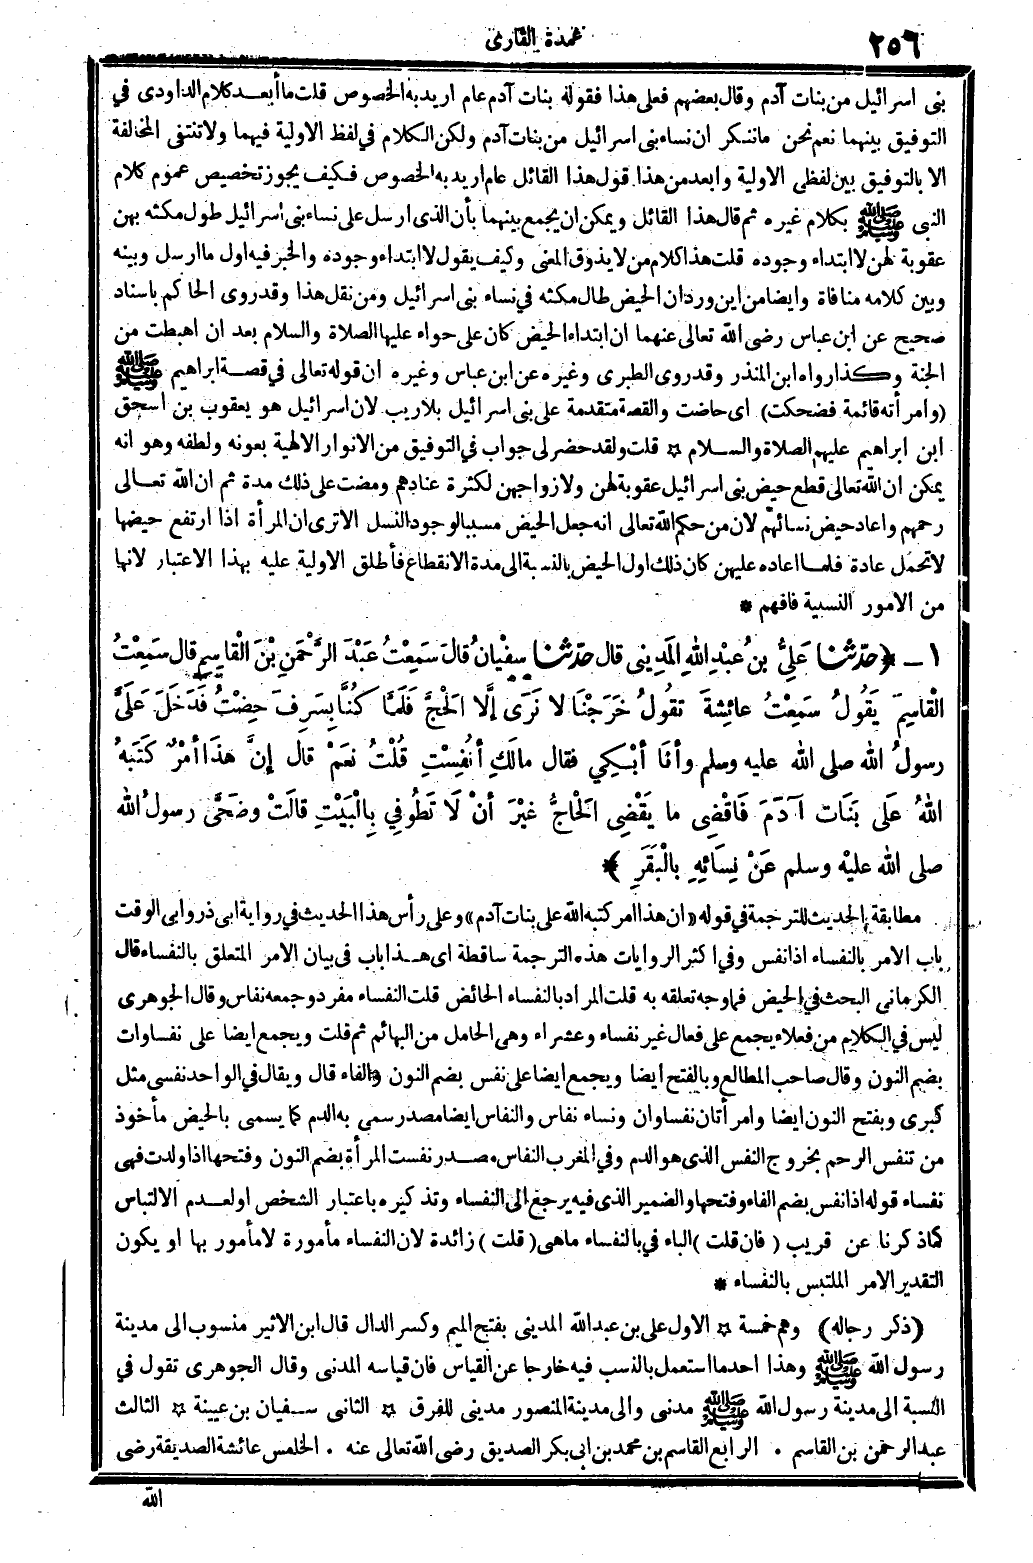 ٢٥٦
عمدة القارى
بنى اسرائيل من بنات آدم وقال بعضهم فعلى هذا فقوله بنات آدم عام اريد به الخصوص قلت ما أبعد كلام الداودى في
التوفيق بينهما نعم نحن ماننكر ان نساء بنى اسرائيل من بنات آدم ولكن الكلام في لفظ الاولية فيهما ولا تنتفى المخالفة
الا بالتوفيق بين لفظى الاولية وابعد من هذا قول هذا القائل عام اريد به الخصوص فكيف يجوز تخصيص عموم كلام
النبى ﷺ بكلام غيره ثم قال هذا القائل ويمكن ان يجمع بينهما بأن الذى ارسل على نساء بنى اسرائيل طول مكثه بهن
عقوبة لهن لا ابتداء وجوده قلت هذا كلام من لا يذوق المعنى وكيف يقول لا ابتداء وجوده والخبر فيه اول ما ارسل وبينه
وبين كلامه منافاة وايضا من اين ورد ان الحيض طال مكثه في نساء بنى اسرائيل ومن نقل هذا وقدروى الحاكم باسناد
صحيح عن ابن عباس رضى الله تعالى عنهما ان ابتداء الحيض كان على حواء عليها الصلاة والسلام بعد ان اهبطت من
الجنة وكذا رواه ابن المنذر وقدروى الطبرى وغيره عن ابن عباس وغيره ان قوله تعالى في قصة ابراهيم ﷺ
(وامرأته قائمة فضحكت) اى حاضت والقصة متقدمة على بنى اسرائيل بلاريب لان اسرائيل هو يعقوب بن اسحق
ابن ابراهيم عليهم الصلاة والسلام ✡ قلت ولقد حضر لى جواب في التوفيق من الانوار الالهية بعونه ولطفه وهو انه
يمكن ان الله تعالى قطع حيض بنى اسرائيل عقوبة لهن ولازواجهن لكثرة عنادهم ومضت على ذلك مدة ثم ان الله تعالى
رحمهم واعاد حيض نسائهم لان من حكم الله تعالى انه جعل الحيض مسببا لوجود النسل الاترى ان المرأة اذا ارتفع حيضها
لاتحمل عادة فلما اعاده عليهن كان ذلك اول الحيض بالنسبة الى مدة الانقطاع فأطلق الاولية عليه بهذا الاعتبار لانها
من الامور النسبية فافهم *
١ - ﴿ حدثنا عَلِيُّ بنُ عبْدِ اللهِ المَدِينِى قال حدثنا سفْيانُ قالَ سَمِعْتُ عَبْدَ الرَّحْمَنِ بْنَ الْقاسِمِ قال سَمِعْتُ
الْقاسِمَ يَقُولُ سَمِعْتُ عائِشةَ تقُولُ خَرَجْنَا لا نَرَى إلَّا الحَجَّ فَلَمَّا كُنَّا بِسَرِفَ حِضْتُ فَدَخَلَ عَلَىَّ
رسولُ الله صلى الله عليه وسلم وأنَا أبْكِي فقال مالَكِ أنُفِسْتِ قُلْتُ نعَمْ قال إنَّ هَذَا أمْرٌ كَتَبَهُ
اللهُ عَلَى بَنَات آدَمَ فَاقْضِى ما يَقْضِى الحَاجُّ غيْرَ أنْ لَا تَطُوفِي بِالْبَيْتِ قالَتْ وضَحَّى رسولُ الله
صلى الله عليْه وسلم عَنْ نِسَائِهِ بالْبَقَرِ ﴾ *
مطابقة الحديث للترجمة في قوله «ان هذا امر كتبه الله على بنات آدم» وعلى رأس هذا الحديث في رواية ابى ذر وابى الوقت
باب الامر بالنفساء اذا نفس وفي اكثر الروايات هذه الترجمة ساقطة اى هذا باب فى بيان الامر المتعلق بالنفساء قال
الكرمانى البحث في الحيض فما وجه تعلقه به قلت المراد بالنفساء الحائض قلت النفساء مفرد وجمعه نفاس وقال الجوهرى
ليس في الكلام من فعلاء يجمع على فعال غير نفساء وعشراء وهى الحامل من البهائم ثم قلت ويجمع ايضا على نفساوات
بضم النون وقال صاحب المطالع وبالفتح ايضا ويجمع ايضا على نفس بضم النون والفاء قال ويقال في الواحد نفسى مثل
كبرى وبفتح النون ايضا وامرأتان نفساوان ونساء نفاس والنفاس ايضا مصدر سمى به الدم كما يسمى بالحيض مأخوذ
من تنفس الرحم بخروج النفس الذى هو الدم وفي المغرب النفاس مصدر نفست المرأة بضم النون وفتحها اذا ولدت فهى
نفساء قوله اذا نفس بضم الفاء وفتحها والضمير الذى فيه يرجع الى النفساء وتذكيره باعتبار الشخص او لعدم الالتباس
كما ذكرنا عن قريب (فان قلت) الباء في بالنفساء ماهى (قلت) زائدة لان النفساء مأمورة لا مأمور بها او يكون
التقدير الامر الملتبس بالنفساء *
(ذكر رجاله) وهم خمسة ✡ الاول على بن عبد الله المدينى بفتح الميم وكسر الدال قال ابن الاثير منسوب الى مدينة
رسول الله ﷺ وهذا احد ما استعمل بالنسب فيه خارجا عن القياس فان قياسه المدنى وقال الجوهرى تقول في
النسبة الى مدينة رسول الله ﷺ مدنى والى مدينة المنصور مدينى للفرق ✡ الثانى سفيان بن عيينة ✡ الثالث
عبد الرحمن بن القاسم . الرابع القاسم بن محمد بن ابى بكر الصديق رضى الله تعالى عنه . الخامس عائشة الصديقة رضى
الله